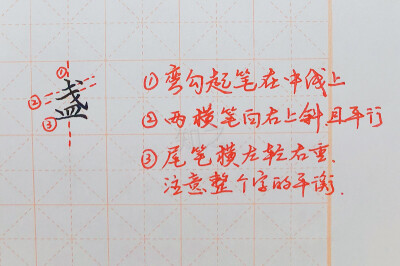 盏
①
②
③
①弯勾起笔在中线上
②两横笔向右上斜且平行
③尾笔横左轻右重.
注意整个字的平衡.